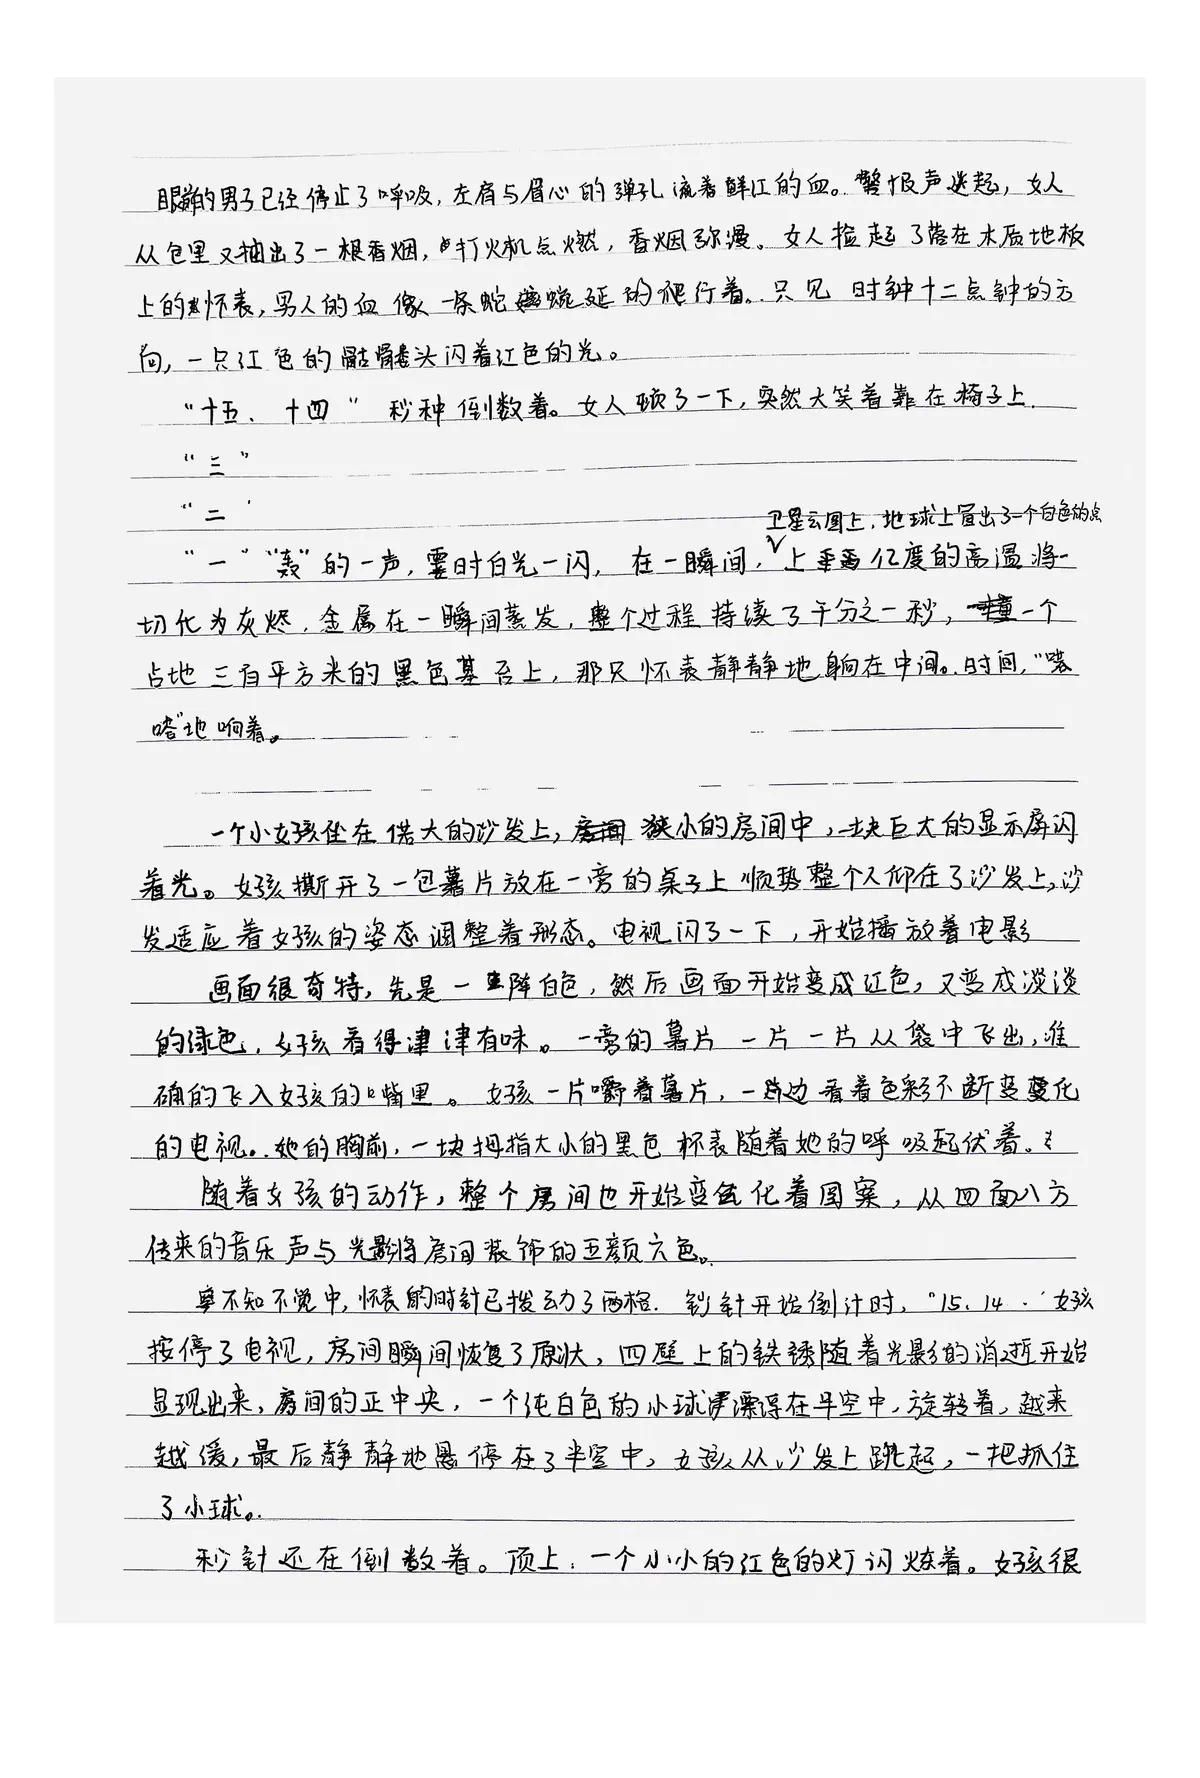 眼前的男子已经停止了呼吸，左肩与眉心的弹孔流着鲜红的血。警报声迭起，女人
从包里又抽出了一根香烟，打火机点燃，香烟弥漫。女人捡起了落在木质地板
上的怀表，男人的血像一条蛇蜿延的爬行着。只见时钟十二点钟的方
向，一只红色的骷髅头闪着红色的光。
“十五、十四” 秒种倒数着。女人顿了一下，突然大笑着靠在椅子上.
“三”
“二”
卫星云图上，地球上冒出了一个白色的点
“一”“轰”的一声，霎时白光一闪，在一瞬间，上亿度的高温将一
切化为灰烬，金属在一瞬间蒸发，整个过程持续了千分之一秒，一个
占地三百平方米的黑色基台上，那只怀表静静地躺在中间。时间，“嗒
嗒”地响着。
一个小女孩坐在偌大的沙发上，狭小的房间中，一块巨大的显示屏闪
着光。女孩撕开了一包薯片放在一旁的桌子上顺势整个人仰在了沙发上，沙
发适应着女孩的姿态调整着形态。电视闪了一下，开始播放着电影
画面很奇特，先是一阵白色，然后画面开始变成红色，又变成淡淡
的绿色，女孩看得津津有味。一旁的薯片一片一片从袋中飞出，准
确的飞入女孩的嘴里。女孩一片嚼着薯片，一边看着色彩不断变化
的电视。她的胸前，一块拇指大小的黑色怀表随着她的呼吸起伏着。
随着女孩的动作，整个房间也开始变化着图案，从四面八方
传来的音乐声与光影将房间装饰的五颜六色。
不知不觉中，怀表的时针已拨动了两格. 秒针开始倒计时，“15、14 . ” 女孩
按停了电视，房间瞬间恢复了原状，四壁上的铁锈随着光影的消逝开始
显现出来，房间的正中央，一个纯白色的小球漂浮在半空中，旋转着，越来
越缓，最后静静地悬停在了半空中，女孩从沙发上跳起，一把抓住
了小球。
秒针还在倒数着。顶上，一个小小的红色的灯闪烁着。女孩很